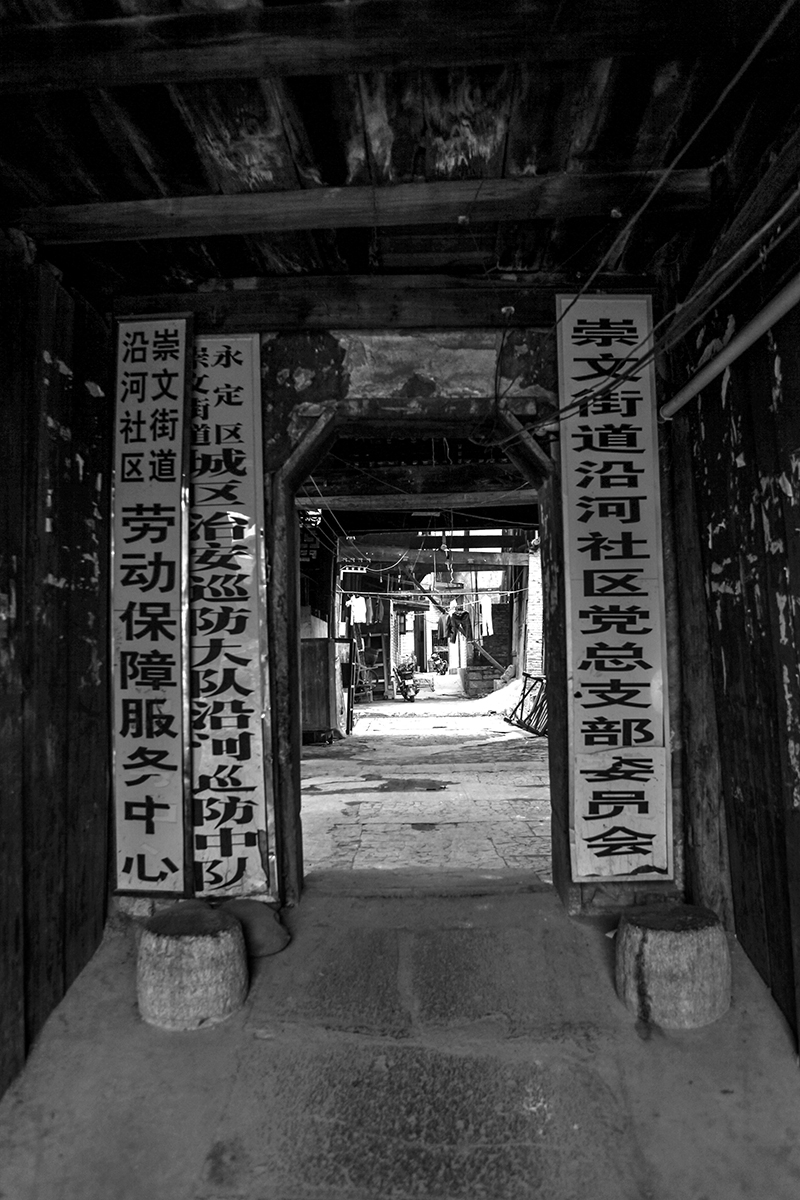 崇文街道
沿河社区
劳动保障服务中心
永定区
崇文街道
城区治安巡防大队沿河巡防中队
崇文街道沿河社区党总支部委员会